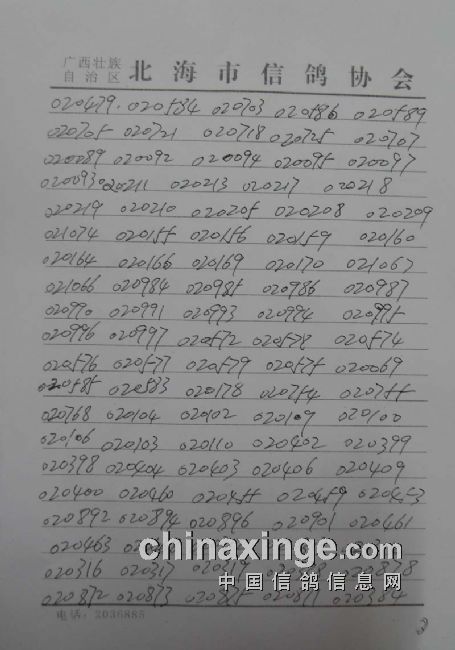 广西壮族
自治区 北海市信鸽协会
020479. 020534 020703 020586 020589
020705 020721 020718 020725 020707
020089 020092 020094 020095 020097
020093 020211 020213 020217 020218
020219 020210 020205 020208 020209
021074 020155 020156 020159 020160
020164 020166 020169 020170 021067
021066 020984 020985 020986 020987
020990 020991 020993 020994 020995
020996 020997 020572 020578 020574
020576 020577 020579 020575 020069
020585 020583 020178 020754 020755
020168 020104 020102 020109 020100
020106 020103 020110 020402 020399
020398 020404 020403 020406 020409
020400 020460 020455 020459 020453
020892 020894 020896 020901 020461
020463
chinaxinge.com
020316 020317 020319 020878
中国信鸽信息网
020872 020873 020875 020871 020384
电话：2036885
3